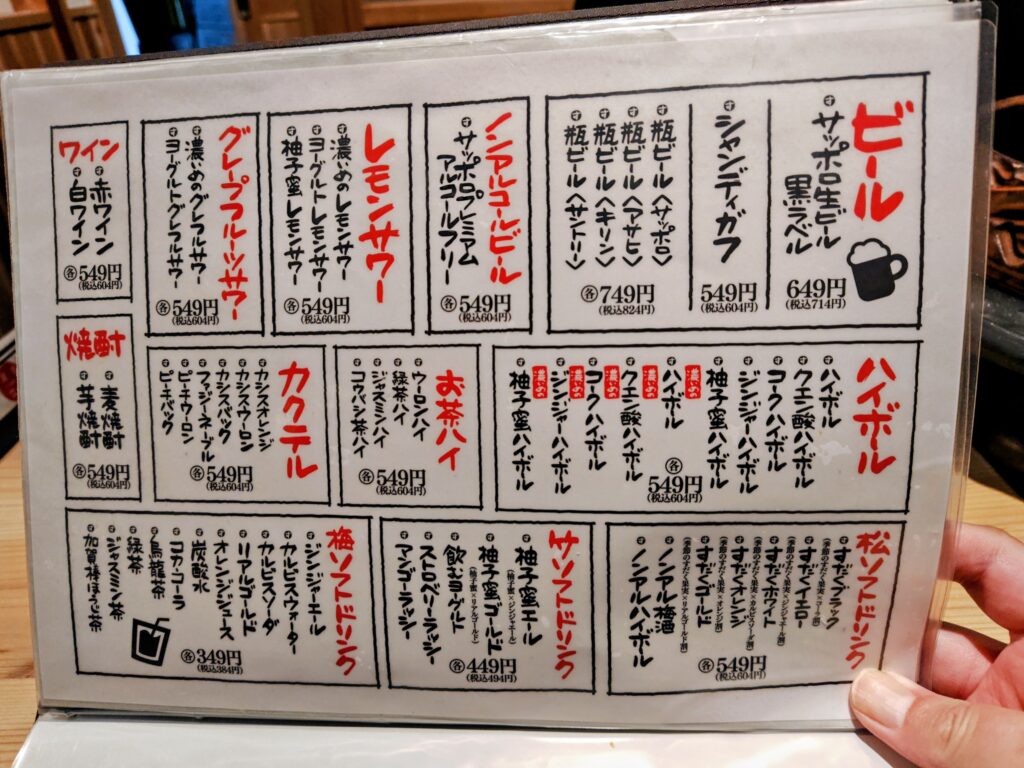 ビール
サッポロ生ビール
黒ラベル
649円
(税込714円)
シャンディガフ
549円
(税込604円)
瓶ビール〈サッポロ〉
瓶ビール〈アサヒ〉
瓶ビール〈キリン〉
瓶ビール〈サントリー〉
各749円
(税込824円)
ノンアルコールビール
サッポロプレミアム
アルコールフリー
各549円
(税込604円)
レモンサワー
濃いめのレモンサワー
ヨーグルトレモンサワー
柚子蜜レモンサワー
各549円
(税込604円)
グレープフルーツサワー
濃いめのグレフルサワー
ヨーグルトグレフルサワー
各549円
(税込604円)
ワイン
赤ワイン
白ワイン
各549円
(税込604円)
ハイボール
ハイボール
クエン酸ハイボール
コークハイボール
ジンジャーハイボール
柚子蜜ハイボール
濃いめ ハイボール
濃いめ クエン酸ハイボール
濃いめ コークハイボール
濃いめ ジンジャーハイボール
濃いめ 柚子蜜ハイボール
各
549円
(税込604円)
お茶ハイ
ウーロンハイ
緑茶ハイ
ジャスミンハイ
コウバシ茶ハイ
各549円
(税込604円)
カクテル
カシスオレンジ
カシスウーロン
カシスバック
ファジーネーブル
ピーチウーロン
ピーチバック
各549円
(税込604円)
焼酎
麦焼酎
芋焼酎
各549円
(税込604円)
松ソフトドリンク
すだくブラック
(季節のすだく果実×コーラ割)
すだくイエロー
(季節のすだく果実×ジンジャエール割)
すだくホワイト
(季節のすだく果実×カルピスソーダ割)
すだくオレンジ
(季節のすだく果実×オレンジ割)
すだくゴールド
(季節のすだく果実×リアルゴールド割)
ノンアル梅酒
ノンアルハイボール
各549円
(税込604円)
竹ソフトドリンク
柚子蜜エール
(柚子蜜×ジンジャエール)
柚子蜜ゴールド
(柚子蜜×リアルゴールド)
飲むヨーグルト
ストロベリーラッシー
マンゴーラッシー
各449円
(税込494円)
梅ソフトドリンク
ジンジャーエール
カルピスウォーター
カルピスソーダ
リアルゴールド
オレンジジュース
炭酸水
コカ・コーラ
烏龍茶
緑茶
ジャスミン茶
加賀棒ほうじ茶
各349円
(税込384円)